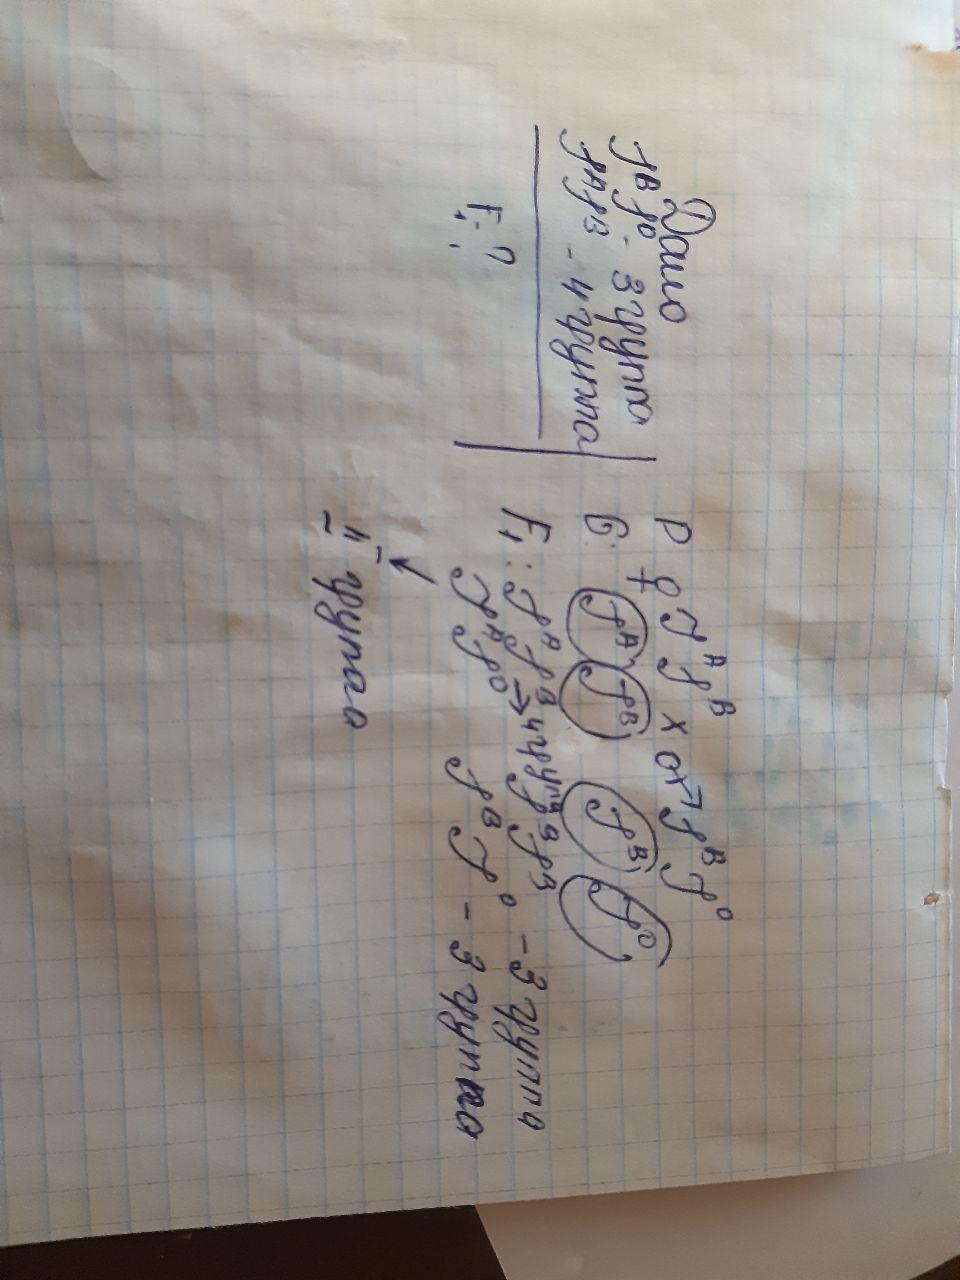 Дано
J^B J^0 - 3 группа
J^A J^B - 4 группа
F₁ - ?
P ♀ J^A J^B x ♂ J^B J^0
G: J^A, J^B, J^B, J^0
F₁: J^A J^B ⇒ 4 группа J^B J^B - 3 группа
J^A J^0 J^B J^0 - 3 группа
II группа